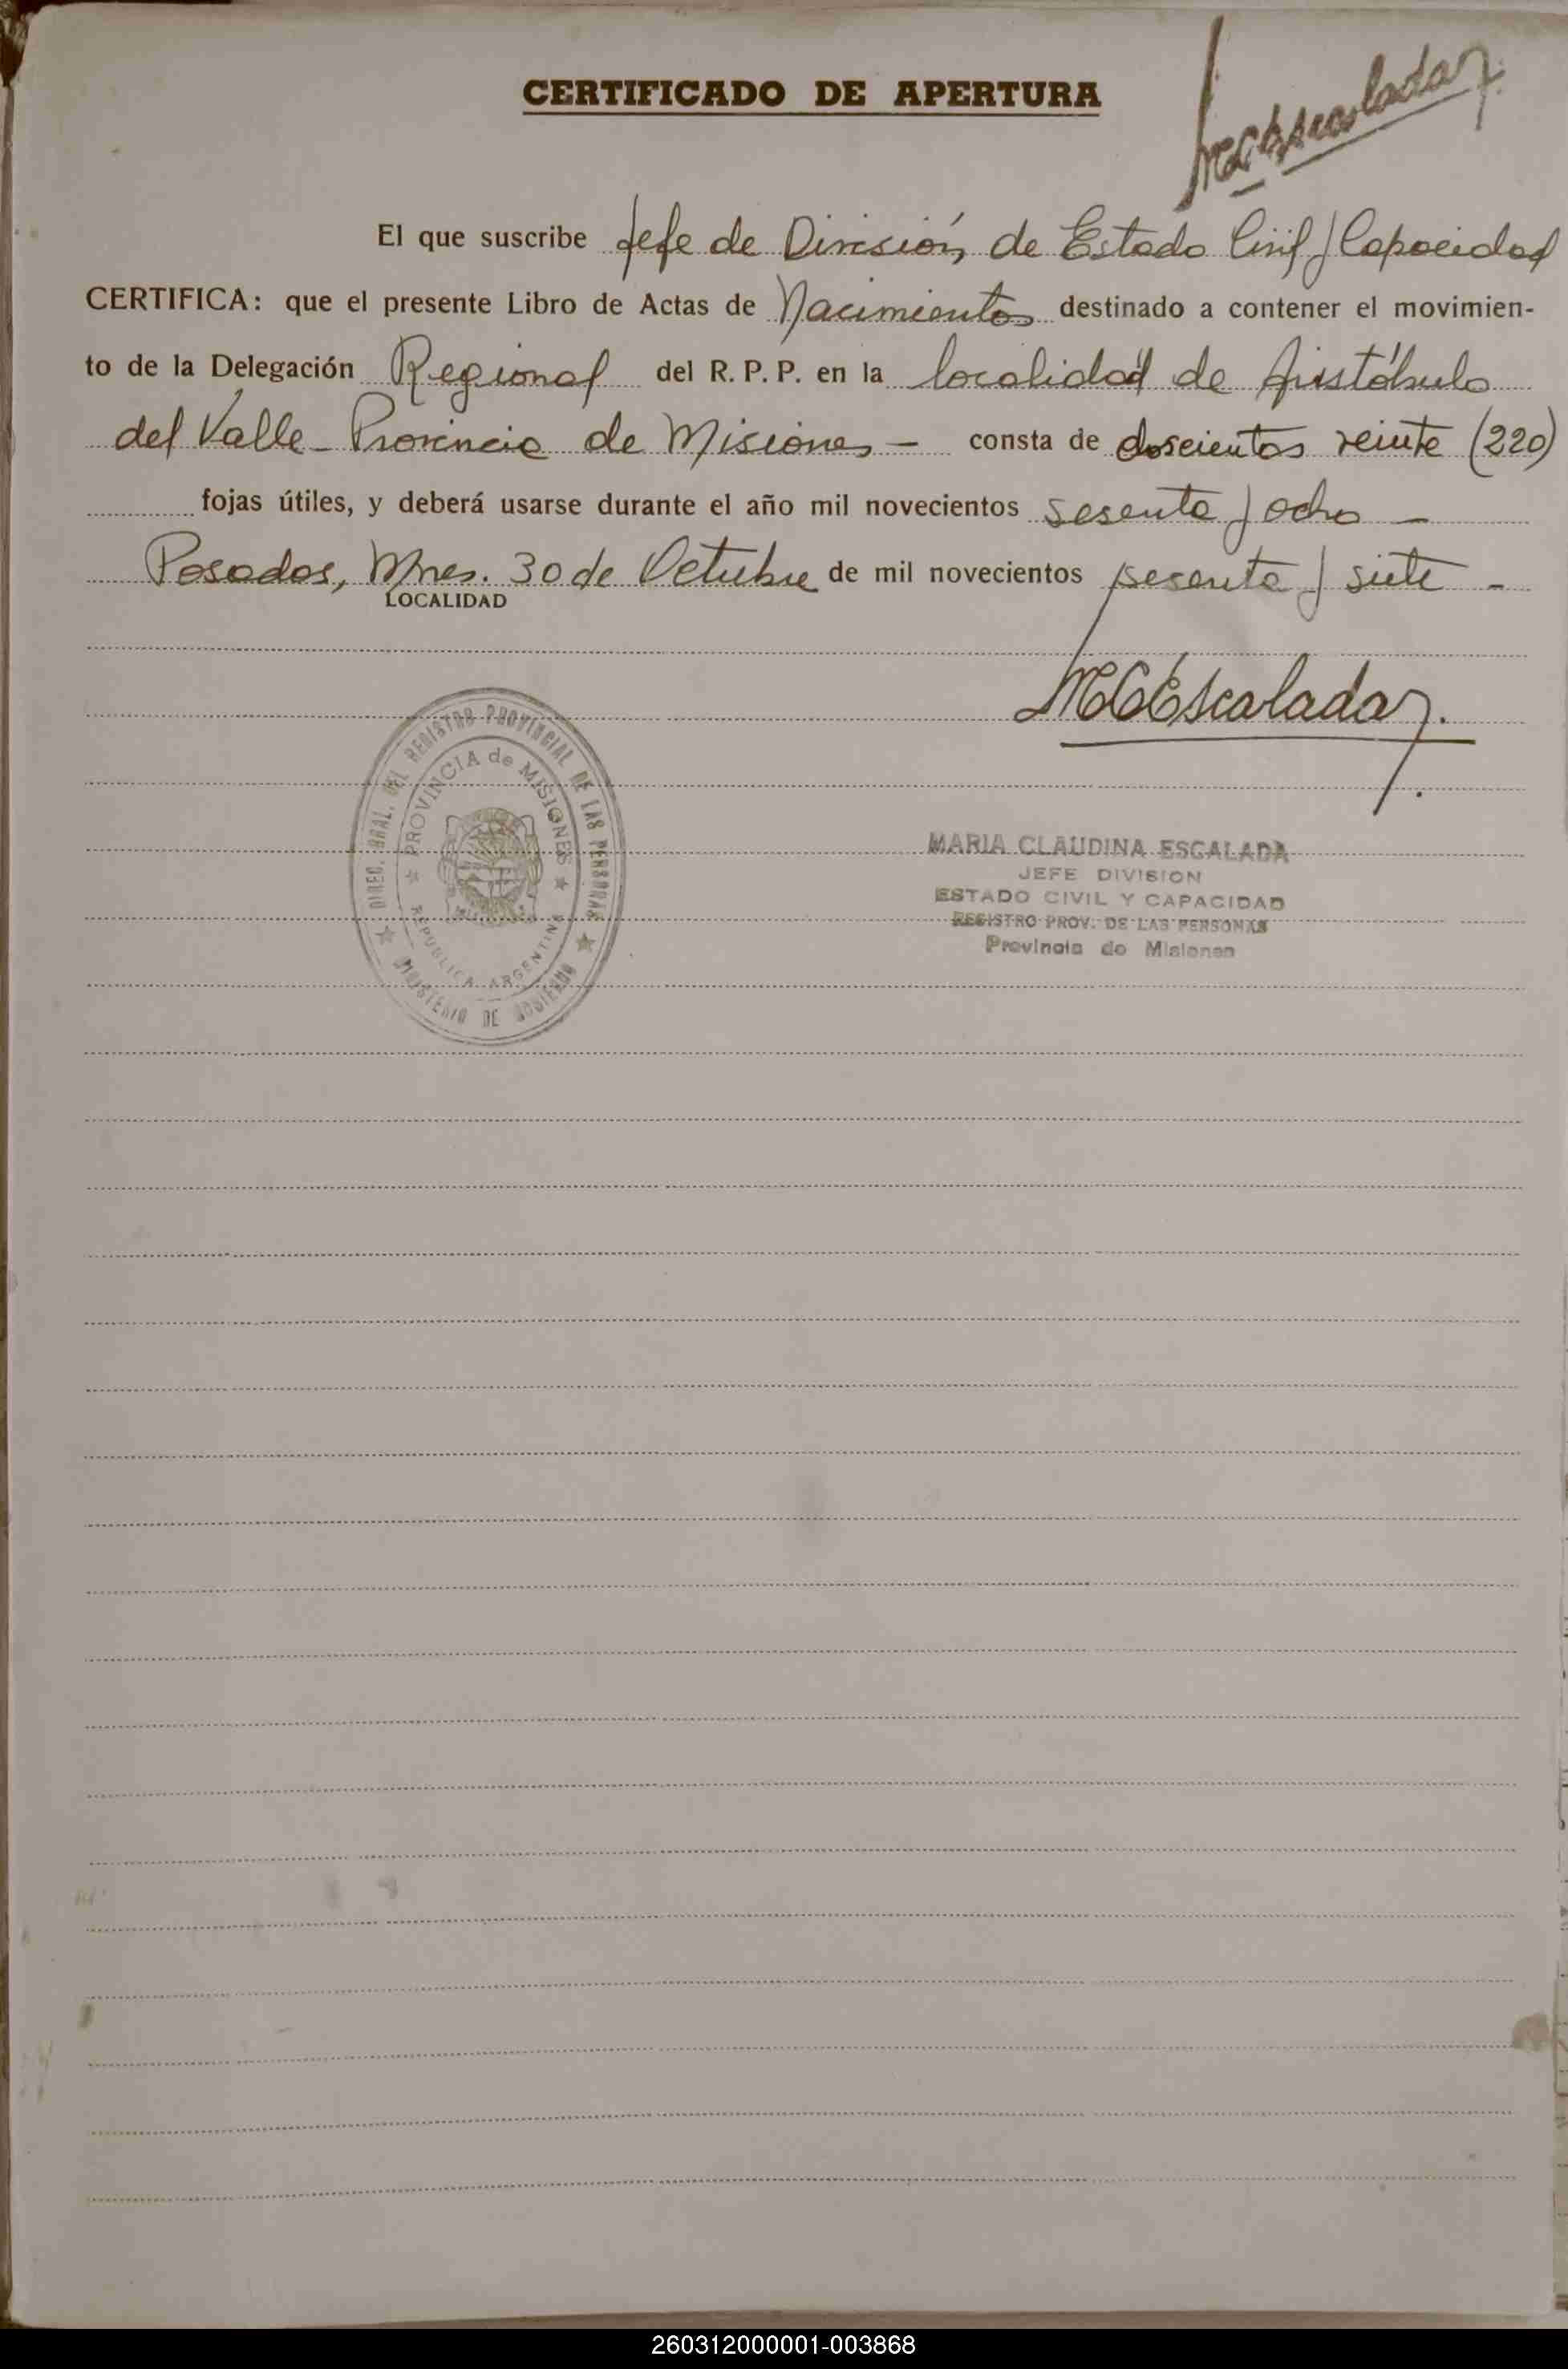 CERTIFICADO DE APERTURA
MCEscalada
El que suscribe Jefe de División de Estado Civil y Capacidad
CERTIFICA: que el presente Libro de Actas de Nacimientos destinado a contener el movimien-
to de la Delegación Regional del R. P. P. en la localidad de Aristóbulo
del Valle - Provincia de Misiones - consta de doscientos veinte (220)
fojas útiles, y deberá usarse durante el año mil novecientos sesenta y ocho -
Posadas, Mnes. 30 de Octubre de mil novecientos sesenta y siete -
LOCALIDAD
MCEscalada
DIREC. GRAL. DEL REGISTRO PROVINCIAL DE LAS PERSONAS
PROVINCIA de MISIONES
REPUBLICA ARGENTINA
MINISTERIO DE GOBIERNO
MARIA CLAUDINA ESCALADA
JEFE DIVISION
ESTADO CIVIL Y CAPACIDAD
REGISTRO PROV. DE LAS PERSONAS
Provincia de Misiones
260312000001-003868